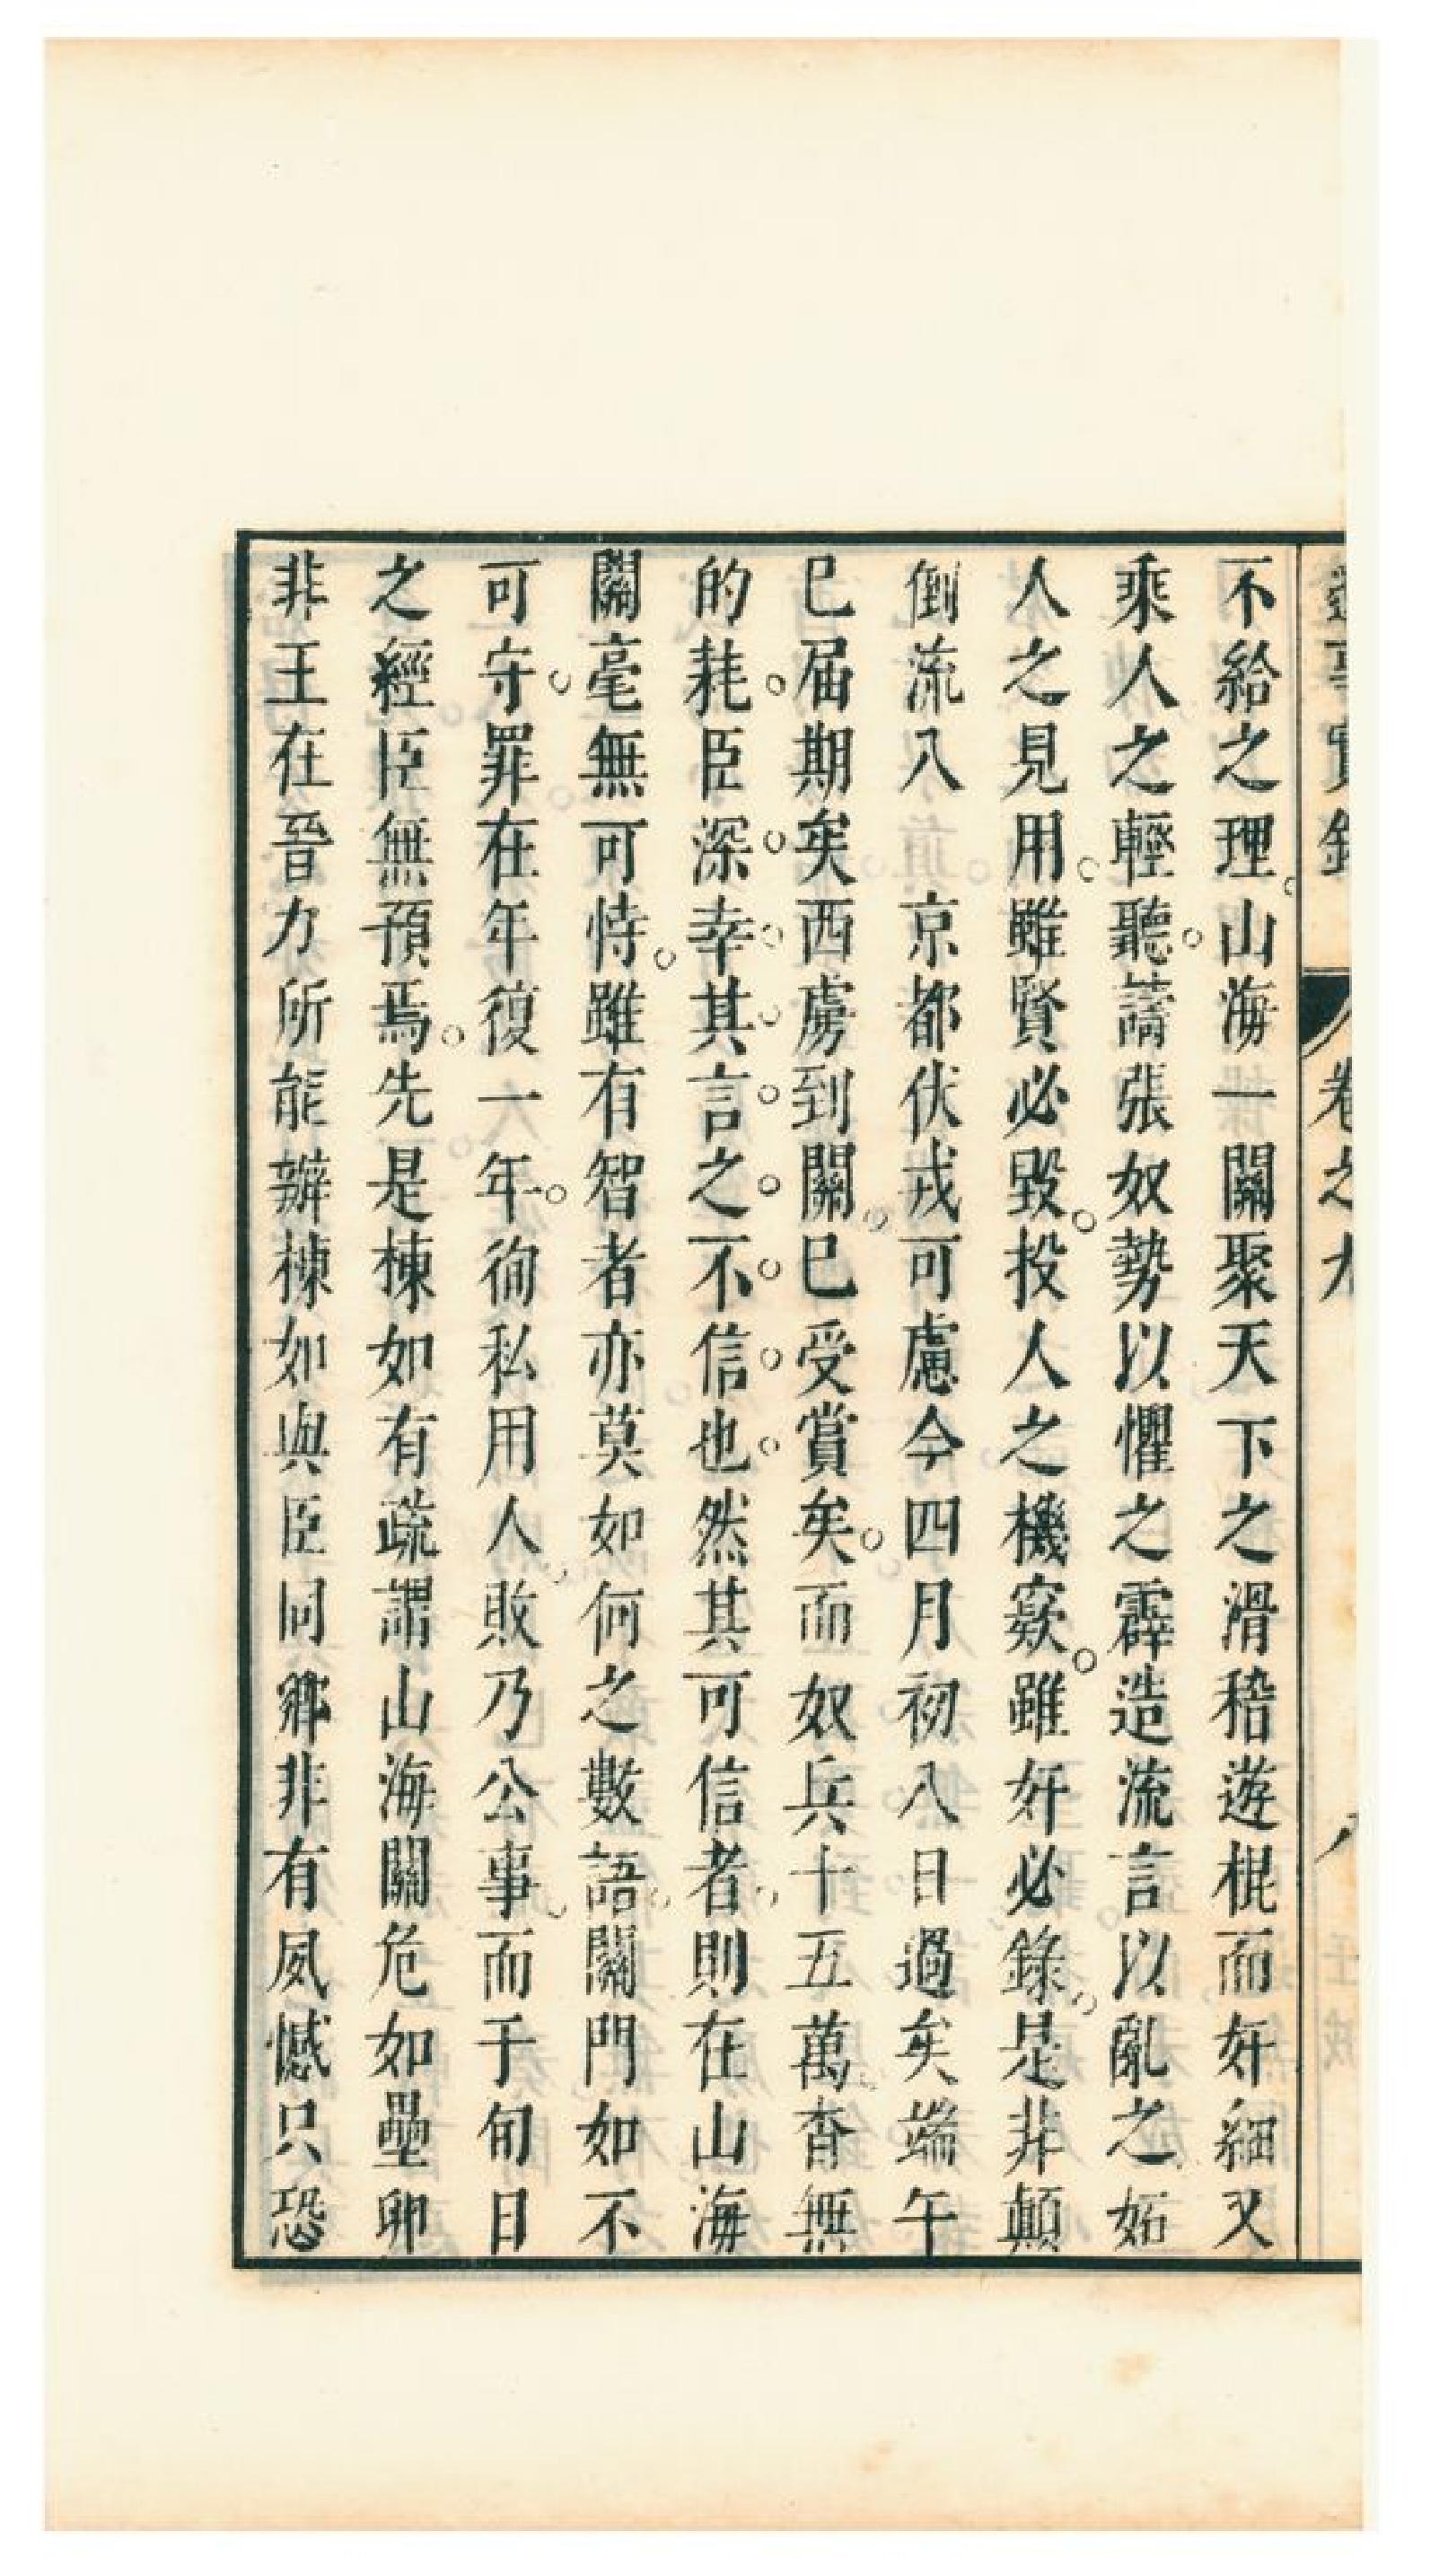 實錄 卷之九 八
不給之理山海一關聚天下之滑稽遊棍而奸細又
乘人之輕聽譸張奴勢以懼之霹造流言以亂之妬
人之見用雖賢必毀投人之機窾雖奸必錄是非顛
倒流入 京都伏戎可慮今四月初八日過矣端午
已届期矣西虜到關已受賞矣而奴兵十五萬杳無
的耗臣深幸其言之不信也然其可信者則在山海
關毫無可恃雖有智者亦莫如何之數語關門如不
可守罪在年復一年徇私用人敗乃公事而于旬日
之經臣無預焉先是棟如有疏謂山海關危如壘卵
非王在晉力所能辦棟如與臣同鄉非有夙憾只恐